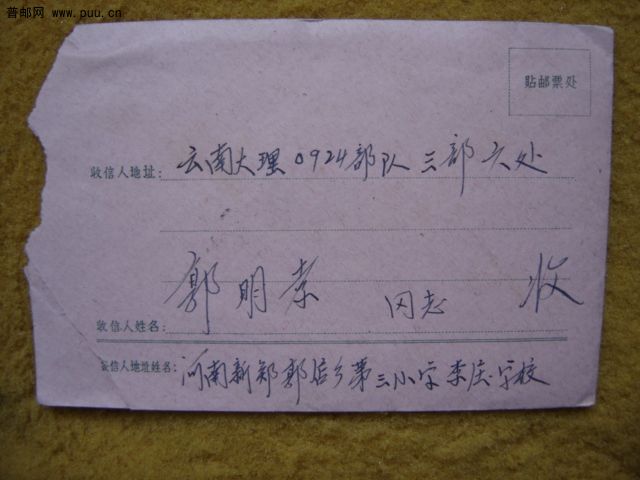 普邮网 www.puu.cn
贴邮票处
收信人地址: 云南大理0924部队三部六处
郭明孝 同志 收
收信人姓名:
发信人地址姓名: 河南新郑郭店乡第三小学李庄学校